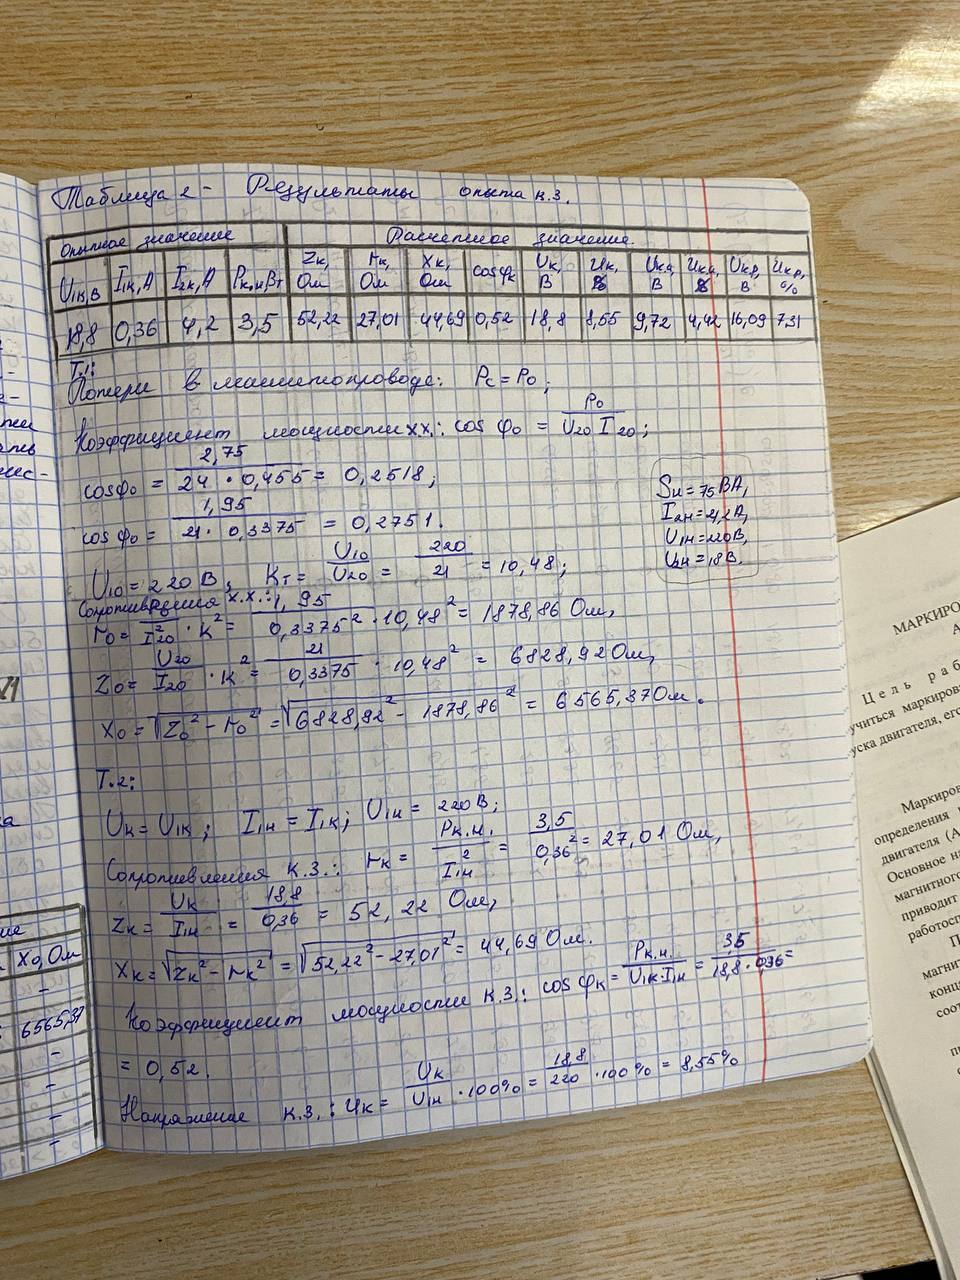 Таблица 2 - Результаты опыта к.з.
Опытное значение Расчетное значение.
U1к,В I1к,А I2к,А Pк.н,Вт Zк, Ом rк, Ом Xк, Ом cosφк Uк, В uк, % Uка, В uка, % Uкр, В uкр, %
18,8 0,36 4,2 3,5 52,22 27,01 44,69 0,52 18,8 8,55 9,72 4,42 16,09 7,31
Т.1:
Потери в магнитопроводе: Pс = P0;
Коэффициент мощности х.х.: cos φ0 = P0 / U20 I20;
cosφ0 = 2,75 / 24 · 0,455 = 0,2518;
cosφ0 = 1,95 / 21 · 0,3375 = 0,2751.
Sн = 75 ВА,
I2н = 4,2 А,
U1н = 220В,
U2н = 18В.
U10 = 220 В, Kт = U10 / U20 = 220 / 21 = 10,48;
Сопротивления х.х.:
r0 = P0 / I20² · K² = 1,95 / 0,3375² · 10,48² = 1878,86 Ом,
Z0 = U20 / I20 · K² = 21 / 0,3375 · 10,48² = 6828,92 Ом,
X0 = √Z0² - r0² = √6828,92² - 1878,86² = 6565,37 Ом.
Т.2:
Uк = U1к; I1н = I1к; U1н = 220 В;
Сопротивления к.з.: rк = Pк.н. / I1н² = 3,5 / 0,36² = 27,01 Ом,
Zк = Uк / I1н = 18,8 / 0,36 = 52,22 Ом,
Xк = √Zк² - rк² = √52,22² - 27,01² = 44,69 Ом.
Коэффициент мощности к.з.: cos φк = Pк.н. / U1к · I1н = 3,5 / 18,8 · 0,36 =
= 0,52.
Напряжение к.з.: uк = Uк / U1н · 100% = 18,8 / 220 · 100% = 8,55%
X0, Ом
-
6565,37
-
-
-
МАРКИРО
А
Цель раб
учиться маркиров
уска двигателя, его
Маркиров
определения
двигателя (А
Основное на
магнитного
приводит
работосп
П
магнит
конц
соот